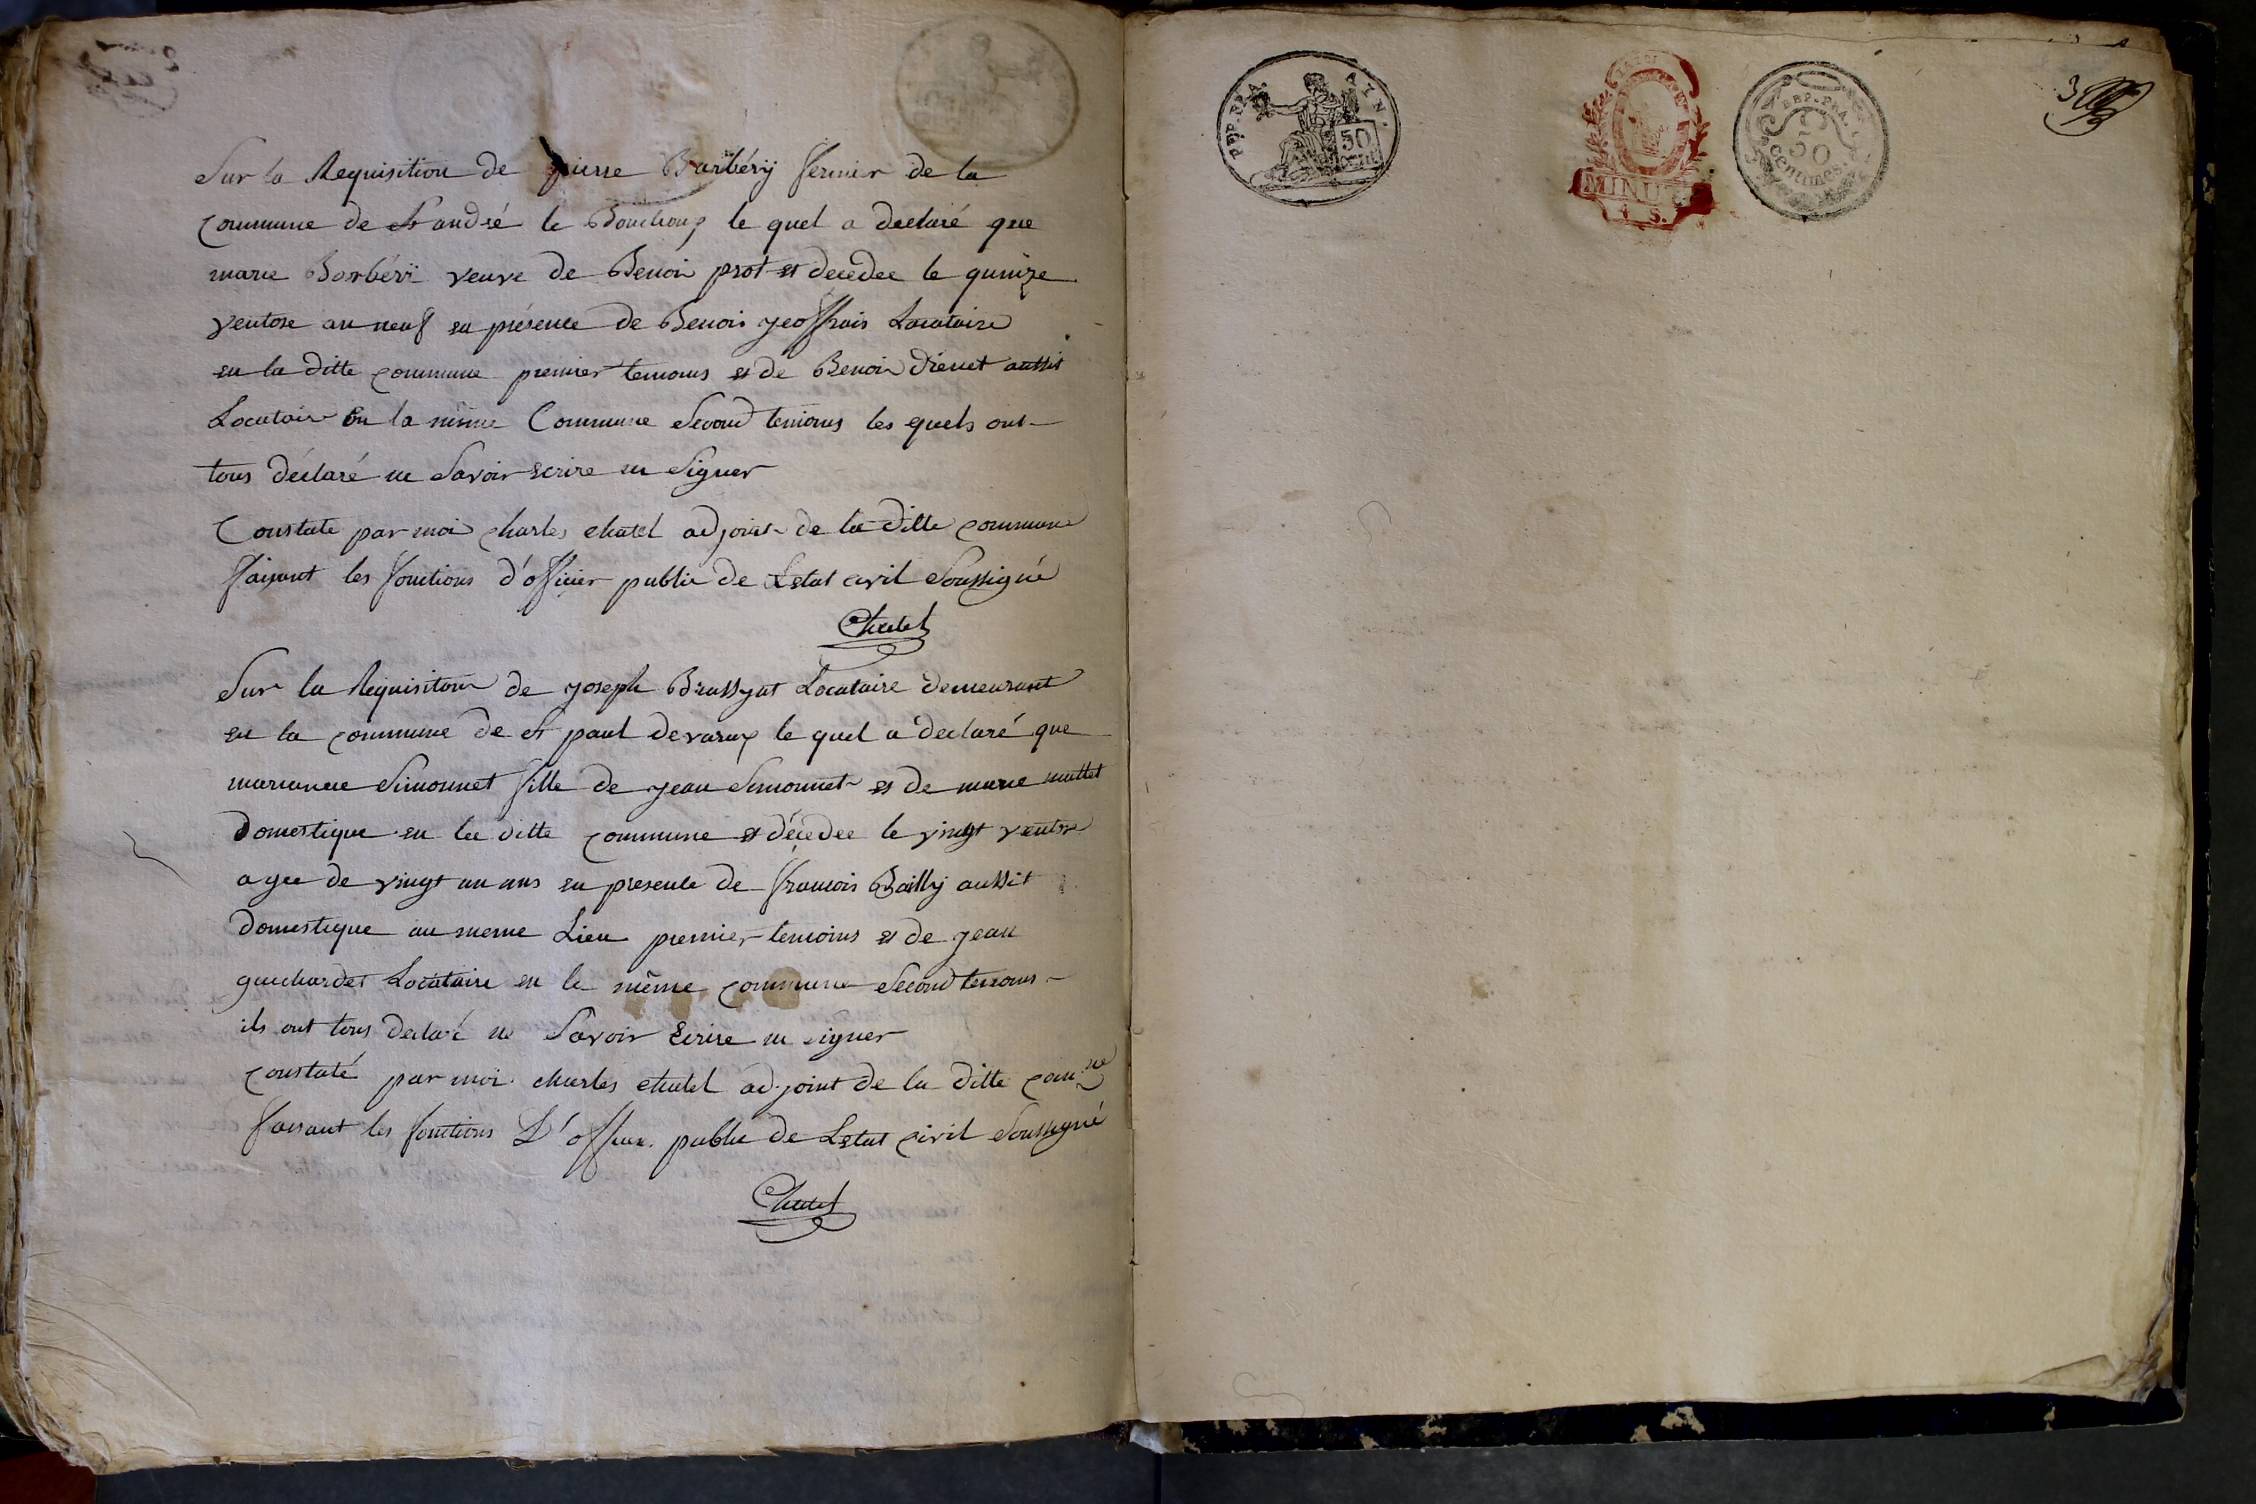 Sur la Requisition de pierre Barbérÿ fermier de la
commune de St andré le Bouchoux le quel a declaré que
marie Barbérÿ veuve de Benoi prost est decedee le quinze
ventose an neuf en présence de Benois yeoffrais Locataire
en la ditte commune premier temoins et de Benoi drevet aussit
Locatair En la même Commune Second temoins les quels ont
tous déclaré ne Savoir ecrire ni Signer
Constate par moi Charles Chatel adjoint de la ditte commune
faisant les fonctions d'officier public de Letat civil Soussigné
Chatel
Sur la Requisition de yoseph Locataire demeurant
en la commune de St paul devaraux le quel a declaré que
marianne Simonnet fille de yean Simonnet et de marie
domestique en la ditte commune est décedee le vingt ventose
agee de vingt un ans en presence de francois Bailly aussit
domestique au meme Lieu premier temoins et de yean
guichardet Locataire en la même commune Second temoins
ils ont tous declaré ne Savoir Ecrire ni signer
constaté par moi charles chatel adjoint de la ditte comne
faisant les fonctions D'officier public de Letat civil Soussigné
Chatel
REP. FRA. AIN.
50 cent
MINUTE
REP. FRA.
50
centimes
3